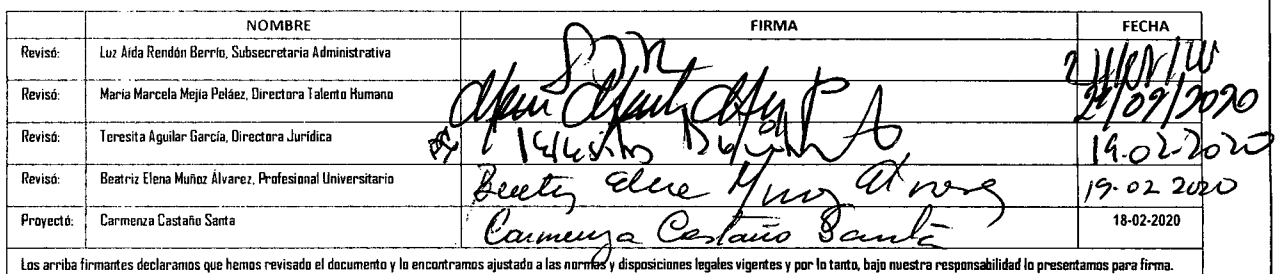 NOMBRE FIRMA FECHA
Revisó: Luz Aída Rendón Berrío, Subsecretaria Administrativa
Revisó: María Marcela Mejía Peláez, Directora Talento Humano 24/02/2020
Revisó: Teresita Aguilar García, Directora Jurídica 19.02-2020
Revisó: Beatriz Elena Muñoz Álvarez, Profesional Universitario 19.02 2020
Proyectó: Carmenza Castaño Santa Carmenza Castaño Santa 18-02-2020
Los arriba firmantes declaramos que hemos revisado el documento y lo encontramos ajustado a las normas y disposiciones legales vigentes y por lo tanto, bajo nuestra responsabilidad lo presentamos para firma.